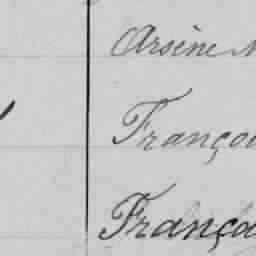 Arsène
Françoi
França